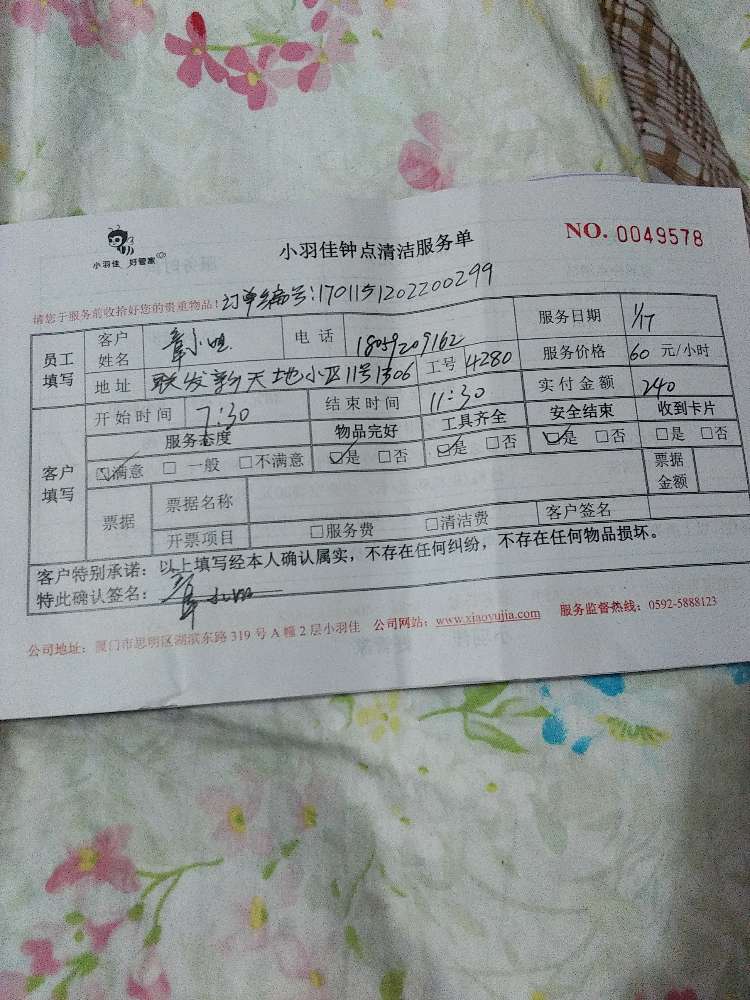 小羽佳 好管家
小羽佳钟点清洁服务单
NO. 0049578
请您于服务前收拾好您的贵重物品!
订单编号:1701151202200299
员工填写 客户姓名 章小姐 电话 18059209162 服务日期 1/17
地址 联发新天地小区11号1306 工号 4280 服务价格 60 元/小时
客户填写 开始时间 7:30 结束时间 11:30 实付金额 240
服务态度 物品完好 工具齐全 安全结束 收到卡片
☑满意 □一般 □不满意 ☑是 □否 ☑是 □否 ☑是 □否 □是 □否
票据 票据名称 票据金额
开票项目 □服务费 □清洁费 客户签名
客户特别承诺:以上填写经本人确认属实,不存在任何纠纷,不存在任何物品损坏。
特此确认签名:章小姐
公司地址:厦门市思明区湖滨东路319号A幢2层小羽佳 公司网站:www.xiaoyujia.com 服务监督热线:0592-5888123